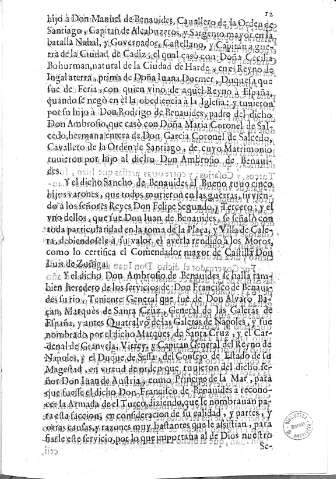 12
hijo à Don Manuel de Benauides, Cauallero de la Orden de
Santiago, Capitan de Alcabuzeros, y Sargento mayor en la
batalla Nabal, y Governador, Castellano, y Capitan à gue-
rra de la Ciudad de Cadiz, el qual casò con Doña Cecilia
Bohurman, natural de la Ciudad de Harde, en el Reyno de
Ingalaterra, prima de Doña Iuana Dormer, Duquesa que
fue de Feria, con quien vino de aquel Reyno à España,
quando se negò en èl la obediencia à la Iglesia; y tuuieron
por su hijo à Don Rodrigo de Benauides, padre del dicho
Don Ambrosio, que casò con Doña Maria Coronel de Sal-
cedo, hermana entera de Don Garcia Coronel de Salcedo,
Cavallero de la Orden de Santiago, de cuyo Matrimonio
tuuieron por hijo al dicho Don Ambrosio de Benaui-
des.
Y el dicho Sancho de Benauides el Bueno tuuo cinco
hijos varones, que todos murieron en las guerras, siruien-
do à los señores Reyes Don Felipe Segundo, y Tercero; y el
vno dellos, que fue Don Iuan de Benauides, se señalò con
toda particularidad en la toma de la Plaça, y Villa de
ra, debiendosele à su valor el averla rendido los Moros,
como lo certifica el Comendador mayor de Castilla Don
Luis de Zuñiga.
Y el dicho Don Ambrosio de Benauides se halla tam-
bien heredero de los seruicios de Don Francisco de Benaui-
des su tio, Teniente General que fue de Don Alvaro Ba-
çan, Marquès de Santa Cruz, General de las Galeras de
España, y antes Quatralvo de las Galeras de Napoles, y fue
nombrado por el dicho Marques de Santa Cruz, y el Car-
denal de Granvela, Virrey, y Capitan General del Reyno de
Napoles, y el Duque de Sessa, del Consejo de Estado de su
Magestad, en virtud de orden que tuuieron del dicho se-
ñor Don Iuan de Austria, como Principe de la Mar, para
que fuesse el dicho Don Francisco de Benauides à recono-
cer la Armada de el Turco, diziendo, que le nombrauan pa-
ra esta faccion, en consideracion de su calidad, y partes, y
otras causas, y razones muy bastantes que le assistian, para
fiarle este servicio, por lo que importaua al de Dios nuestro
Se-